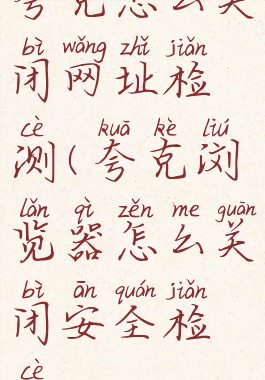 夸克怎么关
bì wǎng zhǐ jiǎn
闭网址检
cè kuā kè liú
测(夸克浏
lǎn qì zěn me guān
览器怎么关
bì ān quán jiǎn
闭安全检
cè